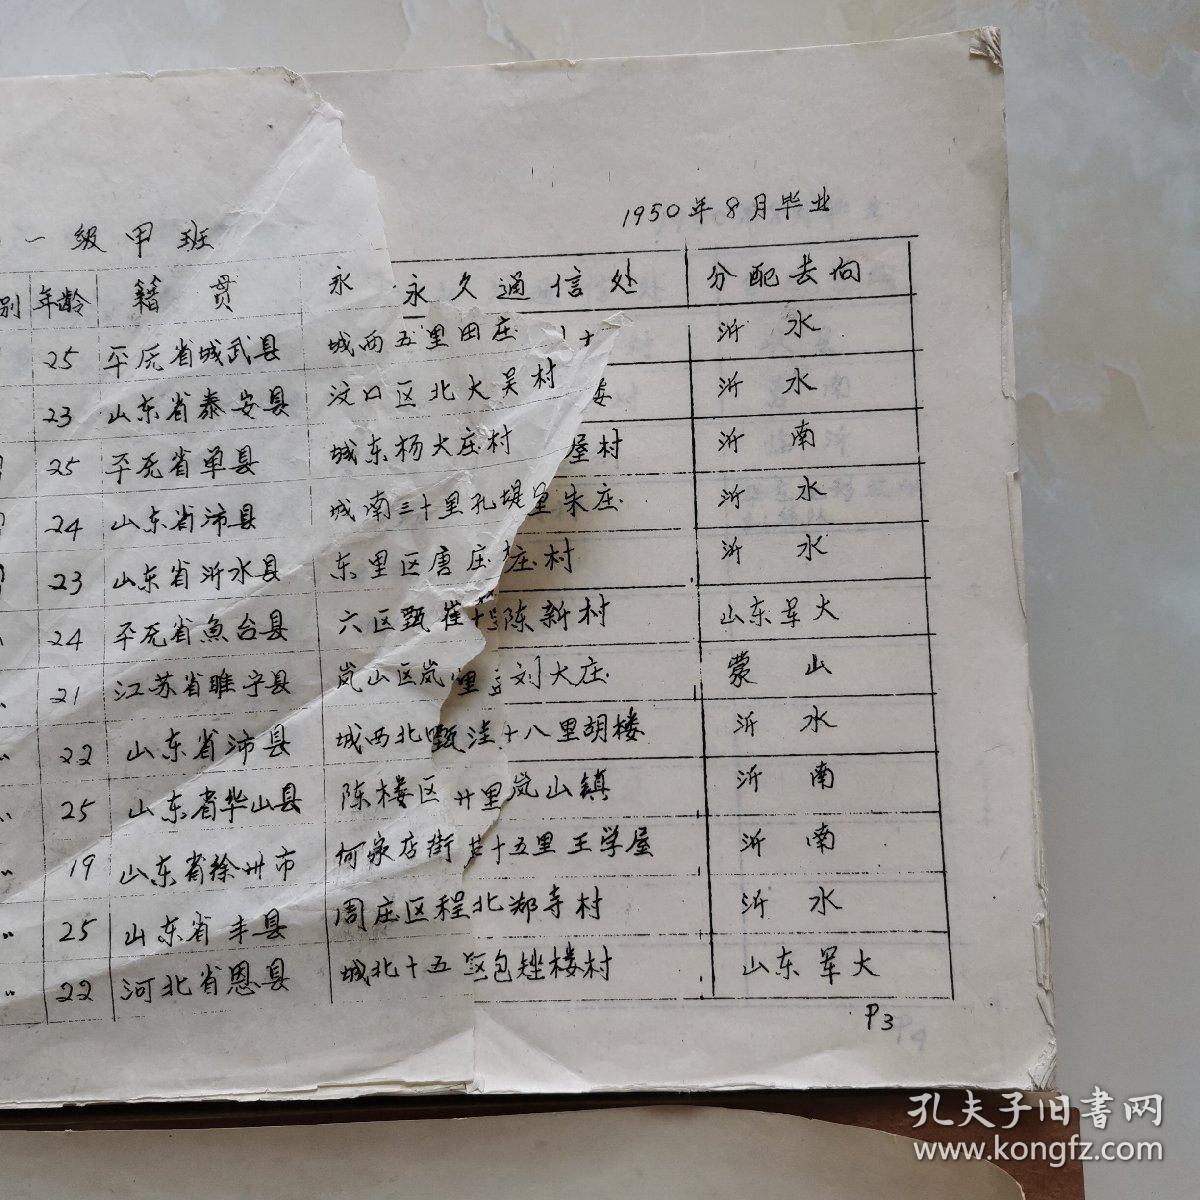 1950年8月毕业
一级甲班
别 年龄 籍贯 永 永久通信处 分配去向
25 平原省城武县 城西五里田庄 沂水
23 山东省泰安县 汶口区北大吴村 楼 沂水
25 平原省单县 城东杨大庄村 屋村 沂南
24 山东省沛县 城南三十里孔堤 里朱庄 沂水
23 山东省沂水县 东里区唐庄 庄村 沂水
24 平原省魚台县 六区甄崔 陈新村 山东军大
21 江苏省睢宁县 岚山区岚 里 刘大庄 蒙山
〃 22 山东省沛县 城西北 甄洼 十八里胡楼 沂水
〃 25 山东省华山县 陈楼区 廿里岚山镇 沂南
〃 19 山东省徐州市 何家店街 十五里王学屋 沂南
〃 25 山东省丰县 周庄区程 北郑寺村 沂水
〃 22 河北省恩县 城北十五 区包矬楼村 山东军大
P3
P4
孔夫子旧书网
www.kongfz.com